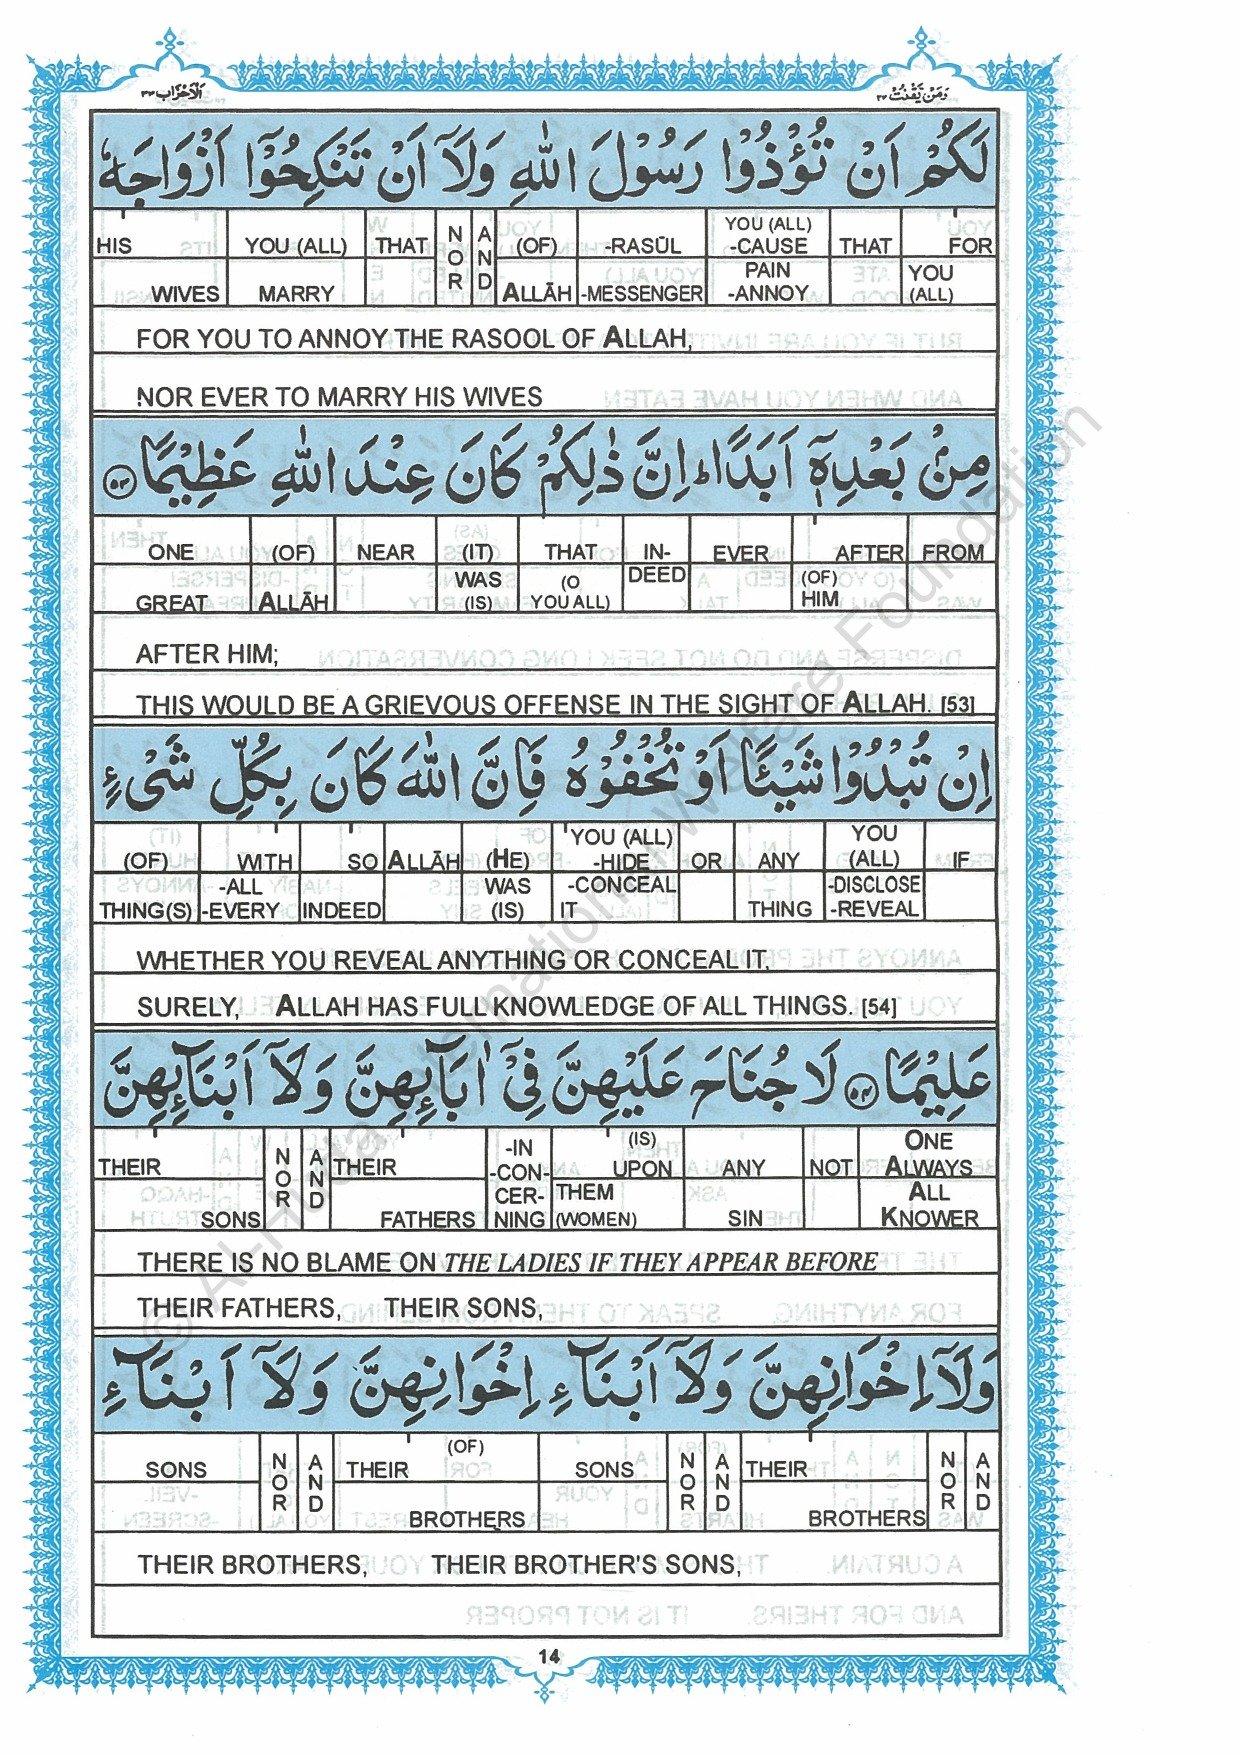 الاحزاب ٣٣
ومن يقنت ٢٢
لَكُمْ اَنْ تُؤْذُوْا رَسُوْلَ اللّٰهِ وَلَآ اَنْ تَنْكِحُوْٓا اَزْوَاجَهٗ
HIS WIVES | YOU (ALL) MARRY | THAT | NOR | AND | (OF) ALLĀH | -RASŪL -MESSENGER | YOU (ALL) -CAUSE PAIN -ANNOY | THAT | FOR YOU (ALL)
FOR YOU TO ANNOY THE RASOOL OF ALLAH,
NOR EVER TO MARRY HIS WIVES
مِنْۢ بَعْدِهٖٓ اَبَدًا ؕ اِنَّ ذٰلِكُمْ كَانَ عِنْدَ اللّٰهِ عَظِيْمًا ﴿۵۳﴾
ONE GREAT | (OF) ALLĀH | NEAR | (IT) WAS (IS) | THAT (O YOU ALL) | IN-DEED | EVER | AFTER (OF) HIM | FROM
AFTER HIM;
THIS WOULD BE A GRIEVOUS OFFENSE IN THE SIGHT OF ALLAH. [53]
اِنْ تُبْدُوْا شَيْئًا اَوْ تُخْفُوْهُ فَاِنَّ اللّٰهَ كَانَ بِكُلِّ شَىْءٍ
(OF) THING(S) | WITH -ALL -EVERY | SO INDEED | ALLĀH | (HE) WAS (IS) | YOU (ALL) -HIDE -CONCEAL IT | OR | ANY THING | YOU (ALL) -DISCLOSE -REVEAL | IF
WHETHER YOU REVEAL ANYTHING OR CONCEAL IT,
SURELY, ALLAH HAS FULL KNOWLEDGE OF ALL THINGS. [54]
عَلِيْمًا ﴿۵۴﴾ لَا جُنَاحَ عَلَيْهِنَّ فِىْٓ اٰبَآئِهِنَّ وَلَآ اَبْنَآئِهِنَّ
THEIR SONS | NOR | AND | THEIR FATHERS | -IN -CON-CER-NING | (IS) UPON THEM (WOMEN) | ANY SIN | NOT | ONE ALWAYS ALL KNOWER
THERE IS NO BLAME ON THE LADIES IF THEY APPEAR BEFORE
THEIR FATHERS, THEIR SONS,
وَلَآ اِخْوَانِهِنَّ وَلَآ اَبْنَآءِ اِخْوَانِهِنَّ وَلَآ اَبْنَآءِ
SONS | NOR | AND | THEIR (OF) BROTHERS | SONS | NOR | AND | THEIR BROTHERS | NOR | AND
THEIR BROTHERS, THEIR BROTHER'S SONS,
14
© Al-Huda International Welfare Foundation